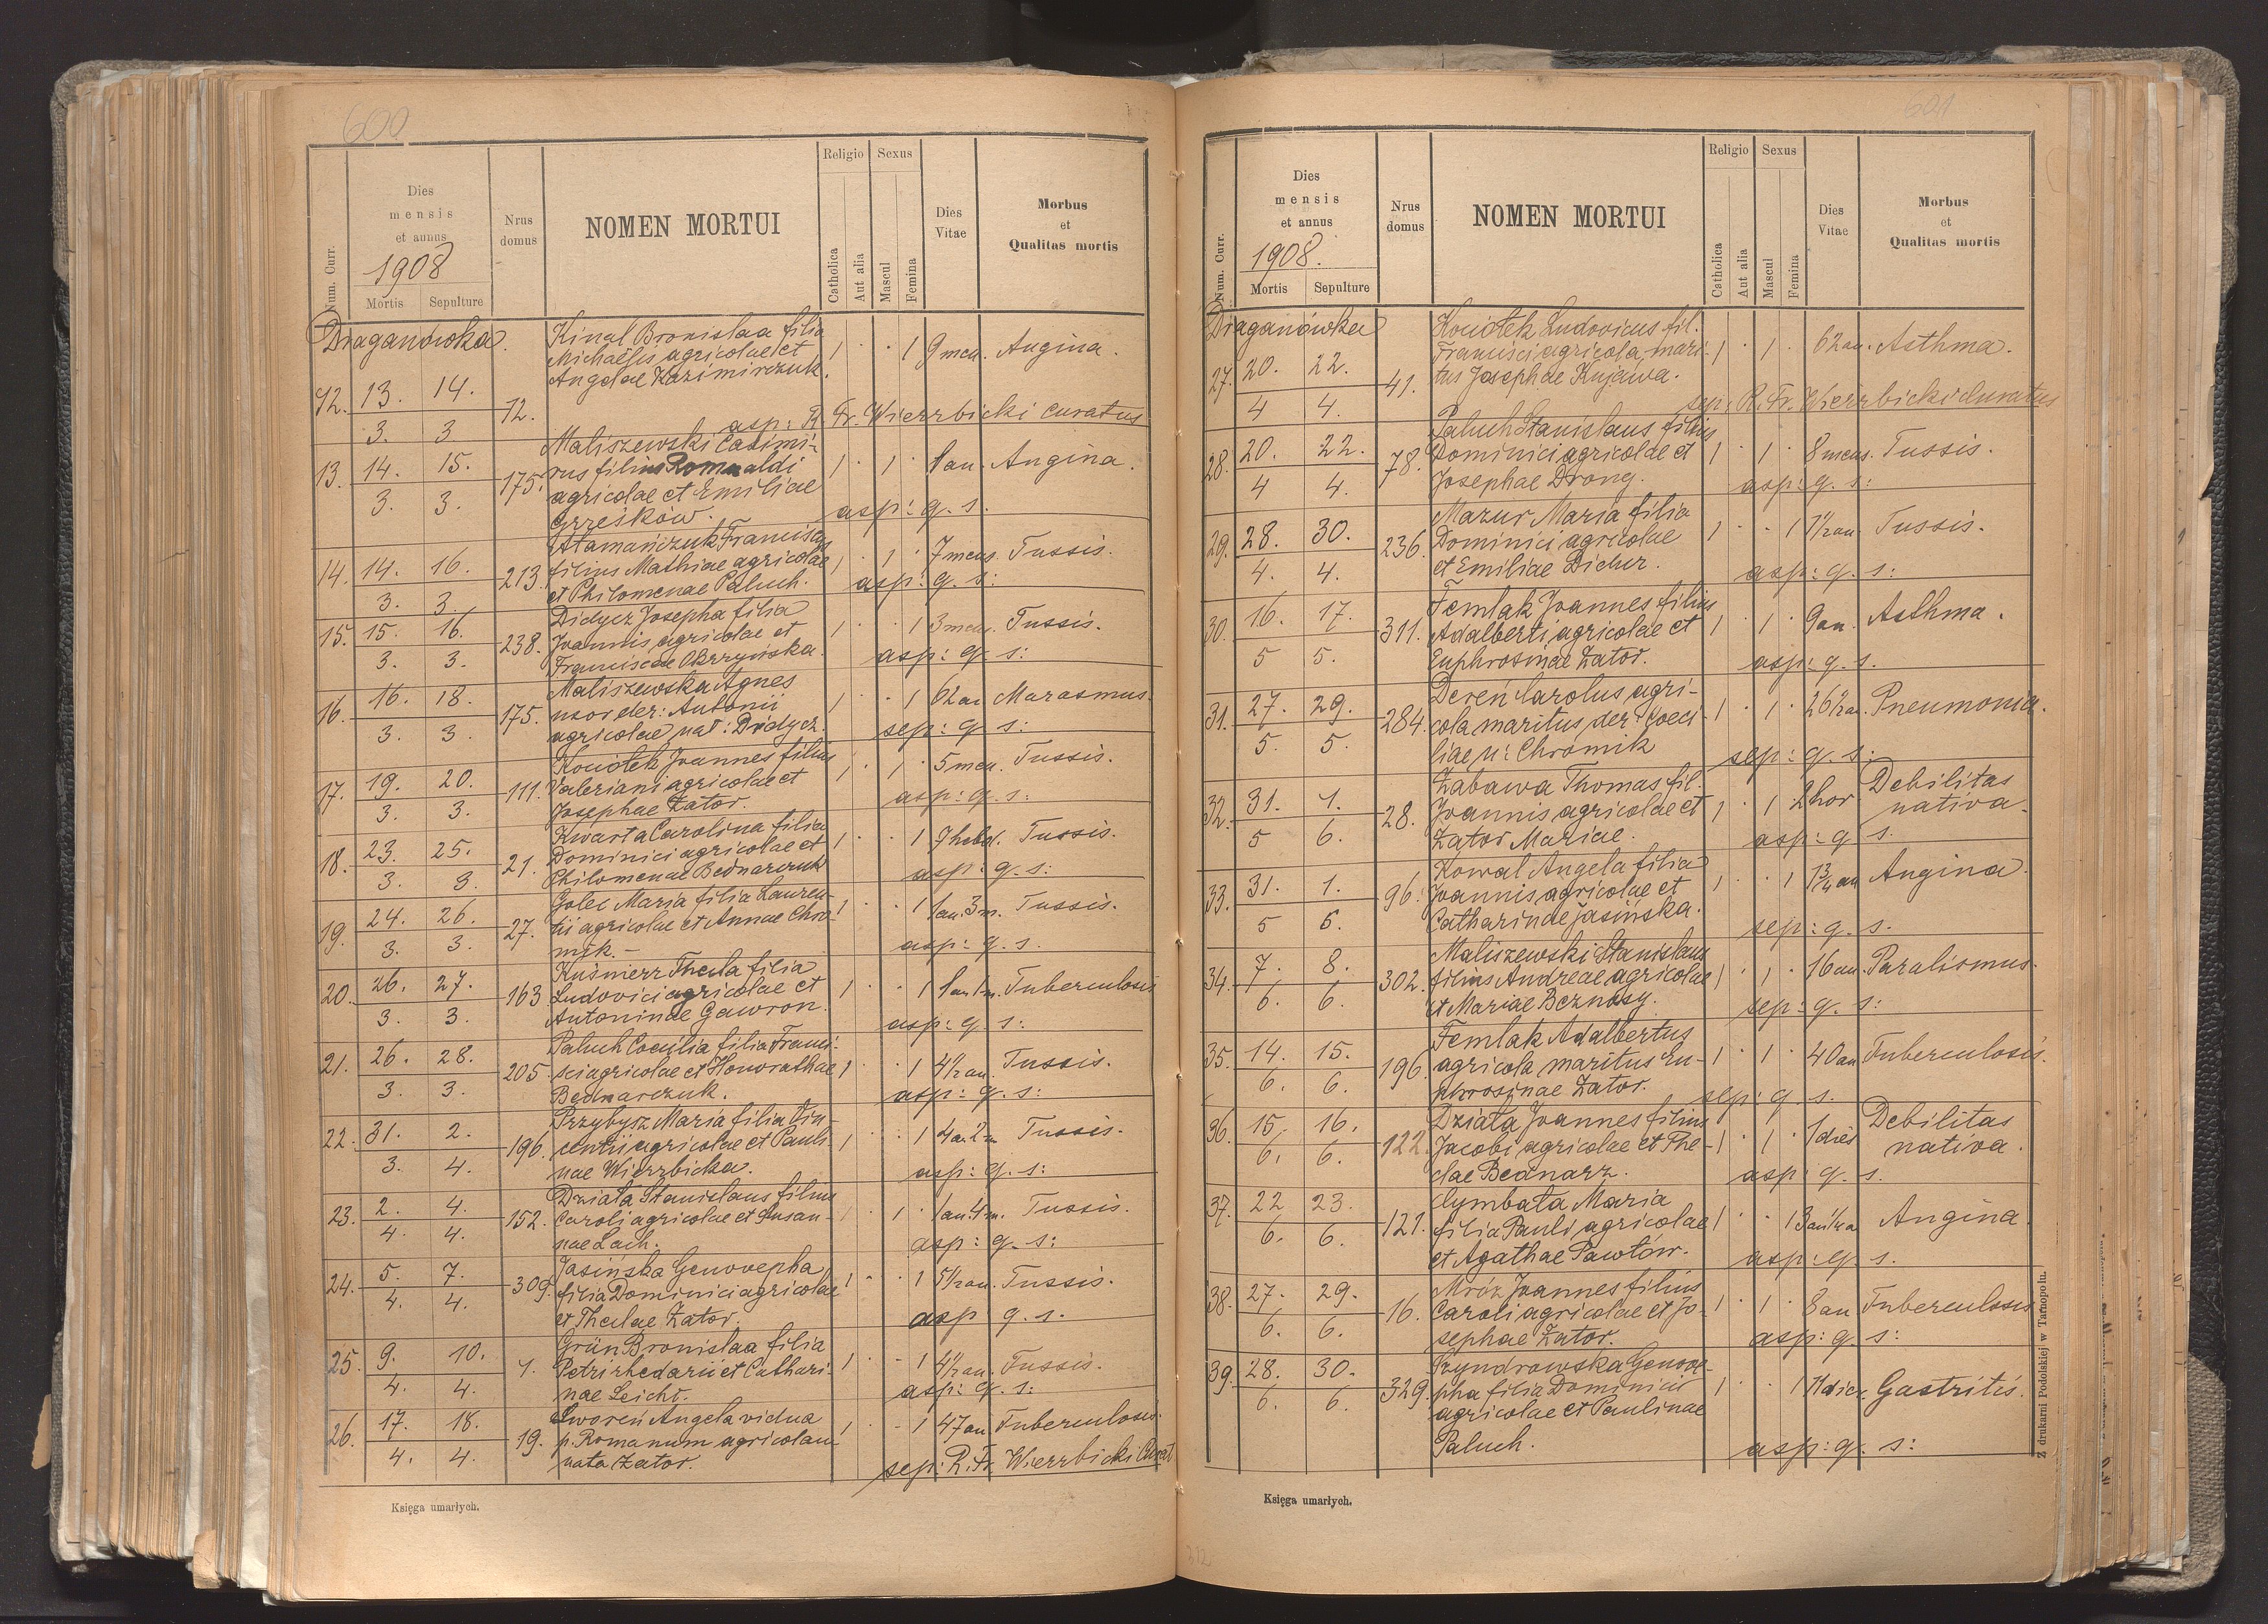 600
Religio Sexus
Dies mensis et annus
1908
Num. Curr. Mortis Sepulture Nrus domus NOMEN MORTUI Catholica Aut alia Mascul Femina Dies Vitae Morbus et Qualitas mortis
Draganówka.
Kinal Bronislaa filia
Michaëlis agricolae et
Angelae Kazimirczuk.
12. 13. 14. 12. 1 · · 1 9 men. Angina.
3. 3
asp: R. Fr. Wierzbicki curatus
Maliszewski Casimi-
rus filius Romualdi
agricolae et Emiliae
Grześków.
13. 14. 15. 175. 1 · 1 · 1 an. Angina.
3. 3.
asp: q. s.
Atamańczuk Franciscus
filius Mathiae agricolae
et Philomenae Paluch.
14. 14. 16. 213. 1 · 1 · 7 mens. Tussis.
3. 3.
asp: q. s:
Didycz Josepha filia
Joannis agricolae et
Franciscae Okrzyńska.
15. 15. 16. 238. 1 · · 1 3 men. Tussis.
3. 3.
asp: q. s:
Maliszewska Agnes
uxor der: Antonii
agricolae nat: Didycz.
16. 16. 18. 175. 1 · · 1 62 an Marasmus.
3. 3.
sep: q. s:
Kouotek Joannes filius
Valeriani agricolae et
Josephae Zator.
17. 19. 20. 111. 1 · 1 · 5 men. Tussis.
3. 3.
asp: q. s:
Kwarta Carolina filia
Dominici agricolae et
Philomenae Bednarczuk
18. 23. 25. 21. 1 · · 1 7 hebd. Tussis.
3. 3.
asp: q. s:
Golec Maria filia Lauren-
tii agricolae et Annae Chro-
mik.-
19. 24. 26. 27. 1 · · 1 1 an. 3 m. Tussis.
3. 3.
asp: q. s.
Kuśnierz Thecla filia
Ludovici agricolae et
Antoninae Gawron.
20. 26. 27. 163 1 · · 1 1 an 1 m. Tuberculosis
3. 3.
asp: q. s:
Paluch Coecilia filia Franci-
sci agricolae et Honorathae
Bednarczuk.
21. 26. 28. 205. 1 · · 1 4 1/2 an. Tussis.
3. 3.
asp: q. s:
Przybysz Maria filia Vin-
centii agricolae et Pauli-
nae Wierzbicka.
22. 31. 2. 196. 1 · · 1 4 a. 2 m Tussis.
3. 4.
asp: q. s:
Działa Stanislaus filius
Caroli agricolae et Susan-
nae Lach.
23. 2. 4. 152. 1 · 1 · 1 an. 4 m. Tussis.
4. 4.
asp: q. s:
Jasińska Genovepha
filia Dominici agricolae
et Theclae Zator.
24. 5. 7. 309. 1 · · 1 5 1/2 an. Tussis.
4. 4.
asp q. s.
Grün Bronislaa filia
Petri rhedarii et Cathari-
nae Leicht.
25. 9. 10. 1. 1 · · 1 4 1/2 an. Tussis.
4. 4.
asp: q. s:
Sworeń Angela vidua
p. Romanum agricolam
nata Zator.
26. 17. 18. 19. 1 · · 1 47 an Tuberculosis.
4. 4.
sep: R. Fr. Wierzbicki Curat
Księga umarłych.
601
Religio Sexus
Dies mensis et annus
1908.
Num. Curr. Mortis Sepulture Nrus domus NOMEN MORTUI Catholica Aut alia Mascul Femina Dies Vitae Morbus et Qualitas mortis
Draganówka
Kouotek Ludovicus fil.
Francisci agricola, mari-
tus Josephae Kujawa.
27. 20. 22. 41. 1 · 1 · 62 an. Asthma.
4 4.
sep: R. Fr. Wierzbicki Curatus
Paluch Stanislaus filius
Dominici agricolae et
Josephae Drong.
28. 20. 22. 78. 1 · 1 · 8 mens. Tussis.
4 4.
asp: q. s:
Mazur Maria filia
Dominici agricolae
et Emiliae Dichur.
29. 28. 30. 236. 1 · · 1 1 1/2 an Tussis.
4. 4.
asp: q. s:
Femlak Joannes filius
Adalberti agricolae et
Euphrosinae Zator.
30. 16. 17. 311. 1 · 1 · 9 an. Asthma.
5 5.
asp: q. s.
Dereń Carolus agri-
cola maritus der: Coeci-
liae n: Chromik
31. 27. 29. 284. 1 · 1 · 26 1/2 an. Pneumonia.
5. 5.
sep: q. s:
Zabawa Thomas fil.
Joannis agricolae et
Zator Mariae.
32. 31. 1. 28. 1 · 1 2 hor Debilitas nativa.
5 6.
asp: q s.
Kowal Angela filia
Joannis agricolae et
Catharinae Jasińska.
33. 31. 1. 96. 1 · · 1 1 3/4 an Angina.
5 6.
sep: q. s.
Maliszewski Stanislaus
filius Andreae agricolae
et Mariae Beznosy.
34. 7. 8. 302. 1 · 1 · 16 an. Paralismus.
6. 6.
sep: q. s:
Femlak Adalbertus
agricola maritus Eu-
phrosinae Zator.
35. 14. 15. 196. 1 · 1 · 40 an Tuberculosis.
6. 6.
sep: q. s.
Działa Joannes filius
Jacobi agricolae et The-
clae Bednarz.
36. 15. 16. 122. 1 · 1 · 1 dies Debilitas nativa.
6. 6.
asp: q. s.
Cymbała Maria
filia Pauli agricolae
et Agathae Pawłów.
37. 22 23. 121. 1 · · 1 Angina.
6. 6.
asp: q. s.
Mróz Joannes filius
Caroli agricolae et Jo-
sephae Zator.
38. 27. 29. 16. 1 · 1 · 8 an Tuberculosis
6. 6.
asp: q. s:
Szyndrowska Genove-
pha filia Dominici
agricolae et Paulinae
Paluch.
39. 28. 30. 329. 1 · · 1 11 dier. Gastritis.
6. 6.
asp: q. s:
Księga umarłych.
Z drukarni Podolskiej w Tarnopolu.
312